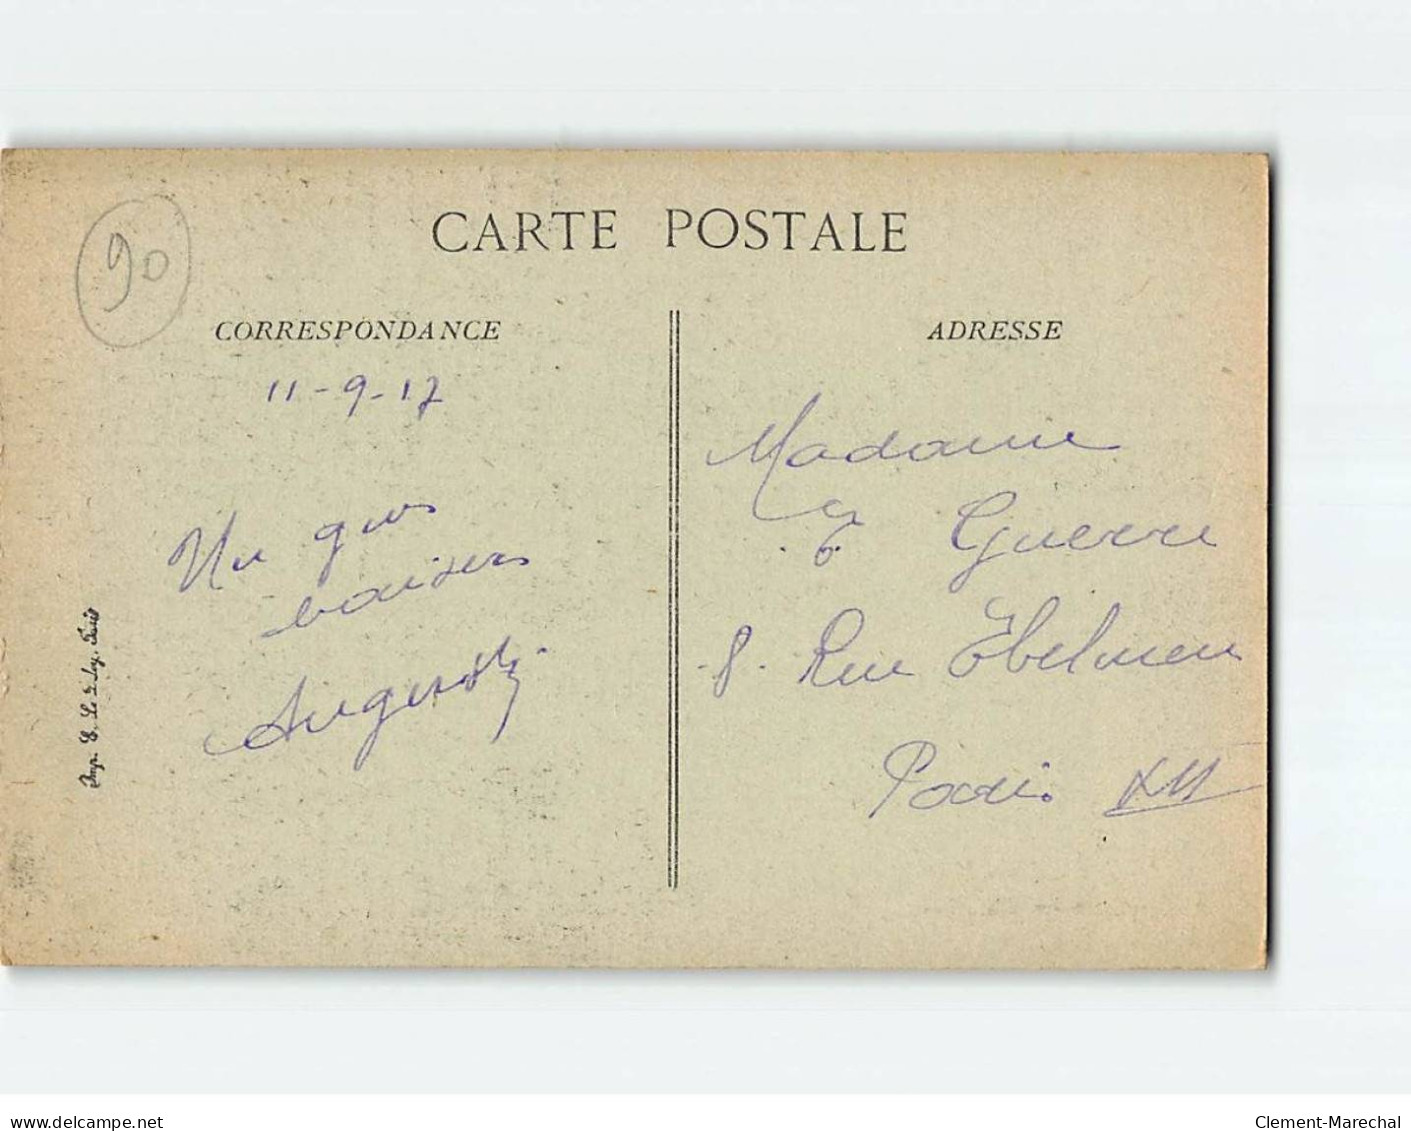 90
CARTE POSTALE
CORRESPONDANCE
11-9-17
Un gros
baisers
ADRESSE
Madame
Guerre
8. Rue Ebelmen
Paris XII
Imp. E. Le Deley, Paris
www.delcampe.net
Clement-Marechal